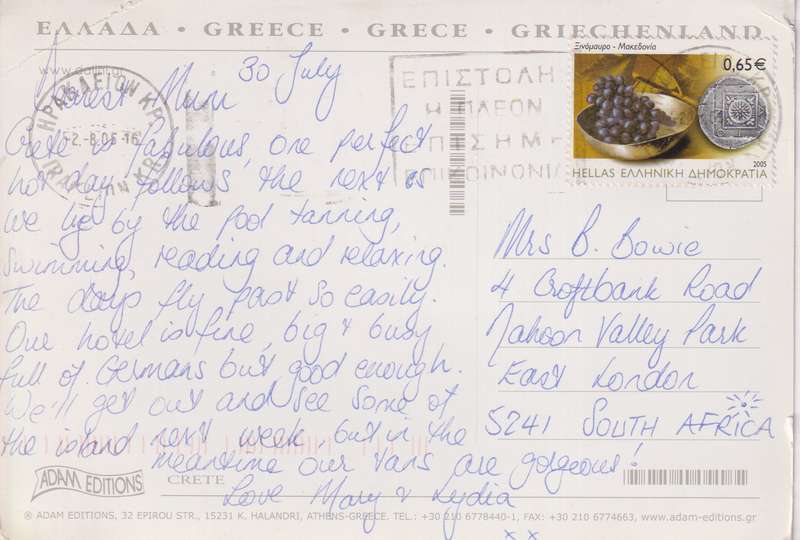 ΕΛΛΑΔΑ • GREECE • GRECE • GRIECHENLAND
Ξινόμαυρο - Μακεδονία
0,65€
2005
HELLAS ΕΛΛΗΝΙΚΗ ΔΗΜΟΚΡΑΤΙΑ
ΕΠΙΣΤΟΛΗ
Η ΠΛΕΟΝ
ΕΠΙΣΗΜΗ
ΕΠΙΚΟΙΝΩΝΙΑ
30 July
Dearest Mum
Crete is fabulous, one perfect
hot day follows the next as
we lie by the pool tanning,
swimming, reading and relaxing.
The days fly past so easily.
Our hotel is fine, big & busy
full of Germans but good enough.
We'll get out and see some of
the island next week but in the
meantime our tans are gorgeous!
Love Mary & Lydia
x x
Mrs B. Bowie
4 Croftbank Road
Nahoon Valley Park
East London
5241 SOUTH AFRICA
ADAM EDITIONS
CRETE
® ADAM EDITIONS, 32 EPIROU STR., 15231 K. HALANDRI, ATHENS-GREECE. TEL.: +30 210 6778440-1, FAX: +30 210 6774663, www.adam-editions.gr